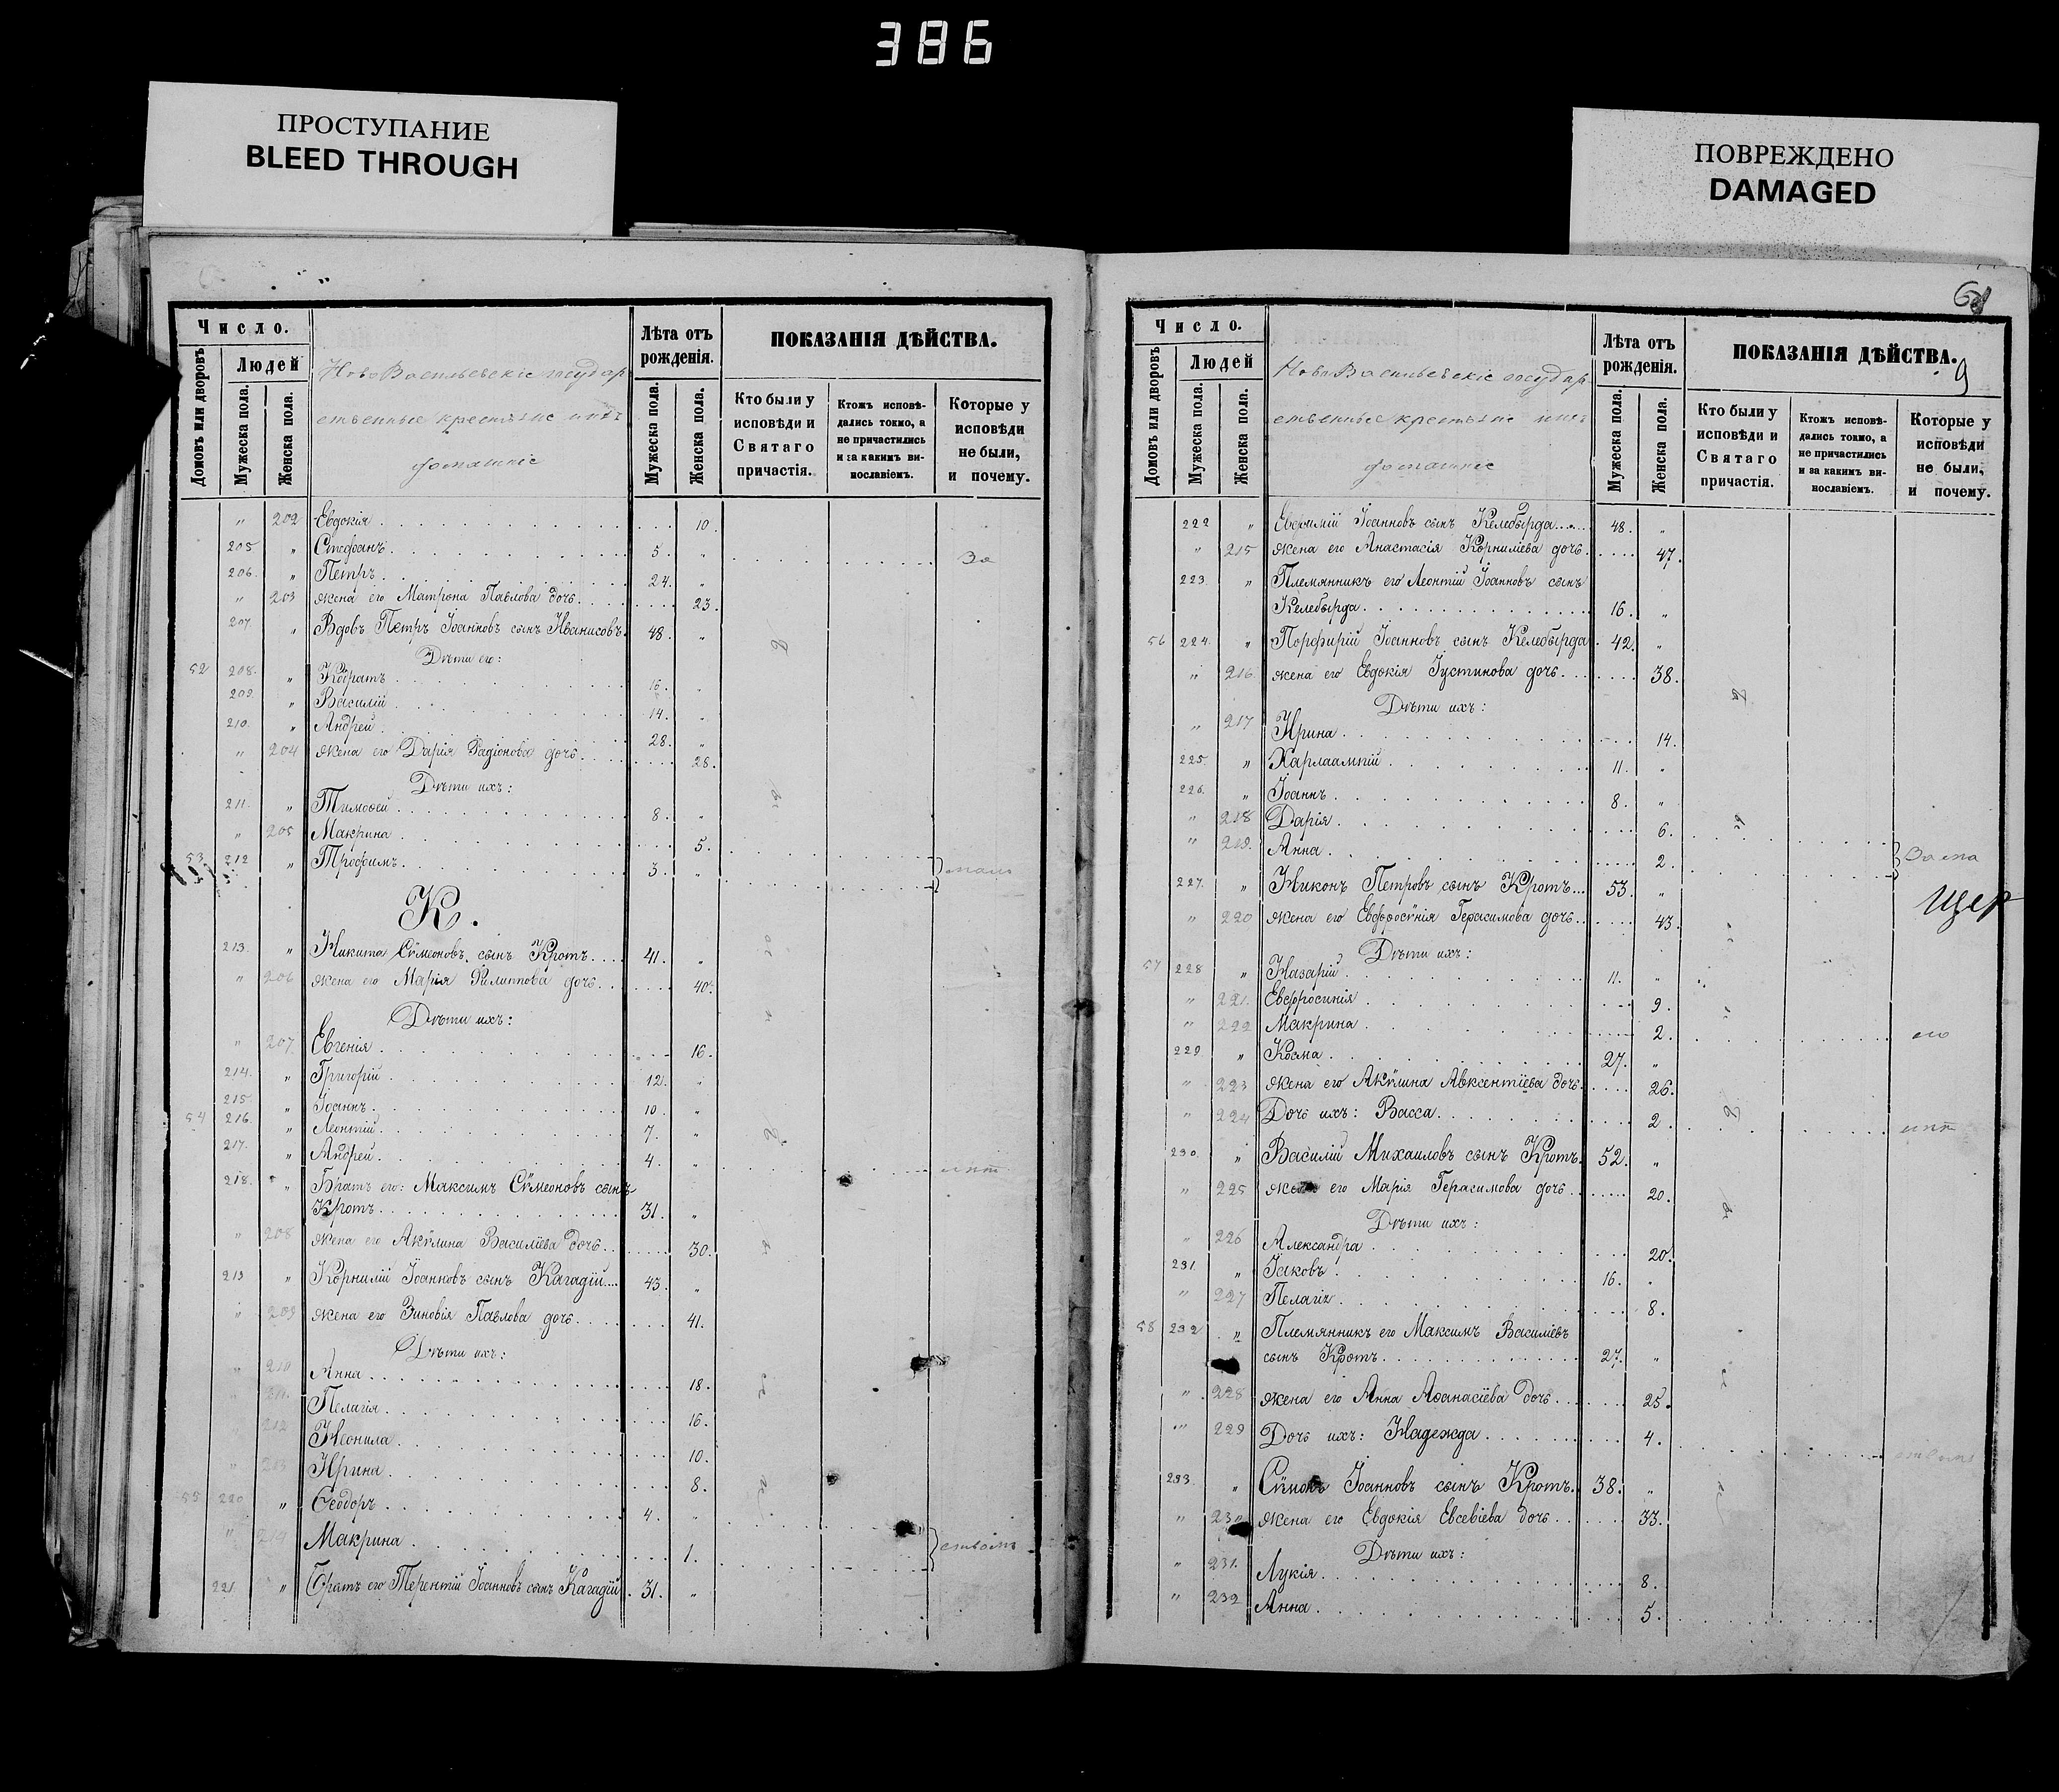 386
ПРОСТУПАНИЕ
BLEED THROUGH
ПОВРЕЖДЕНО
DAMAGED
Число.
Домовъ или дворовъ
Людей
Мужеска пола.
Женска пола.
НовоВасильевскіе государ
ственные крестьяне и ихъ
домашніе
Лѣта отъ рожденія.
Мужеска пола.
Женска пола.
ПОКАЗАНІЯ ДѢЙСТВА.
Кто были у исповѣди и Святаго причастія.
Ктожъ исповѣдались токмо, а не причастились и за какимъ винословіемъ.
Которые у исповѣди не были, и почему.
" 202 Евдокія 10.
205 " Стефанъ 5. " За
206. " Петръ 24. "
" 203 жена его Матрона Павлова дочь 23.
207. " Вдовъ Петръ Іоанновъ сынъ 48. "
Дѣти его:
52 208. " Кодратъ 16. "
209. " Василій 14. "
210. " Андрей 28. "
" 204 жена его Дарія Радіонова дочь 28.
Дѣти ихъ:
211. " Тимоѳей 8. "
" 205 Макрина 5.
53 212 " Трофимъ 3. "
К.
213. " Никита Сѵмеоновъ сынъ Кротъ 41. "
" 206 жена его Марія Филиппова дочь 40.
Дѣти ихъ:
" 207 Евгенія 16.
214. " Григорій 12. "
215 " Іоаннъ 10. "
54 216. " Леонтій 7. "
217. " Андрей 4. "
218. " Братъ его: Максимъ Сѵмеоновъ сынъ
Кротъ 31. "
" 208 жена его Акѵлина Василіева дочь 30.
219 " Корнилій Іоанновъ сынъ Кагадій 43. "
" 209 жена его Зиновія Павлова дочь 41.
Дѣти ихъ:
" 210 Анна 18.
" 211. Пелагія 16.
" 212 Неонила 10.
" 213 Ирина 8.
55 220 " Ѳеодоръ 4. "
" 214 Макрина 1. ствомъ
221. " Братъ его Терентій Іоанновъ сынъ Кагадій 31. "
Число.
Домовъ или дворовъ
Людей
Мужеска пола.
Женска пола.
НовоВасильевскіе государ
ственные крестьяне и ихъ
домашніе
Лѣта отъ рожденія.
Мужеска пола.
Женска пола.
ПОКАЗАНІЯ ДѢЙСТВА.
9
Кто были у исповѣди и Святаго причастія.
Ктожъ исповѣдались токмо, а не причастились и за какимъ винословіемъ.
Которые у исповѣди не были, и почему.
222 " Евфимій Іоанновъ сынъ Келебырда 48. "
" 215 жена его Анастасія Корниліева дочь 47.
223. " Племянникъ его Леонтій Іоанновъ сынъ
Келебырда 16. "
56 224. " Порфирій Іоанновъ сынъ Келебырда 42. "
" 216. жена его Евдокія Іустинова дочь 38.
Дѣти ихъ:
" 217 Ирина 14.
225. " Харлаампій 11. "
226. " Іоаннъ 8. "
" 218 Дарія 6.
" 219. Анна 2. За ма
227. " Никонъ Петровъ сынъ Кротъ 53. "
" 220 жена его Евфросѵнія Герасимова дочь 43.
Дѣти ихъ:
57 228 " Назарій 11. "
" 221. Евфросинія 9.
" 222 Макрина 2.
229 " Косма 27. "
" 223 жена его Акѵлина Авксентіева дочь 26.
" 224 Дочь ихъ: Васса 2.
230. " Василій Михаиловъ сынъ Кротъ 52. "
" 225 жена его Марія Герасимова дочь 20.
Дѣти ихъ:
" 226 Александра 20.
231 " Іаковъ 16. "
" 227 Пелагія 8.
58 232 " Племянникъ его Максимъ Василіевъ
сынъ Кротъ 27. "
" 228 жена его Анна Аѳанасіева дочь 25.
" 229 Дочь ихъ: Надежда 4.
233. " Іоанновъ сынъ Кротъ 38. "
" жена его Евдокія Евсевіева дочь 33.
Дѣти ихъ:
" 231. Лукія 8.
" 232 Анна 5.